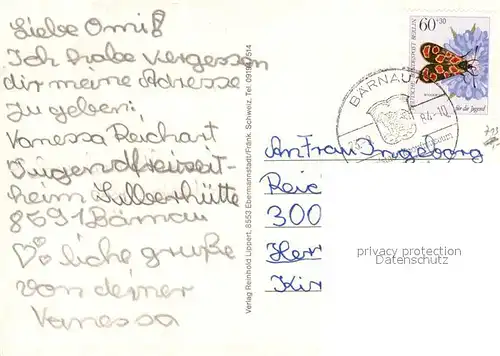 Liebe Omi!
Ich habe vergessen
dir meine Adresse
zu geben:
Vanessa Reichart
Jugendfreizeit-
heim Silberhütte
8591 Bärnau
liche grüße
von deiner
Vanessa
Verlag Reinhold Lippert, 8553 Ebermannstadt/Fränk. Schweiz, Tel. 09194/514
60+30
DEUTSCHE BUNDESPOST BERLIN
für die Jugend
BÄRNAU
84.-10
An Frau Ingeborg
Reic
300
Her
Kir
privacy protection
Datenschutz